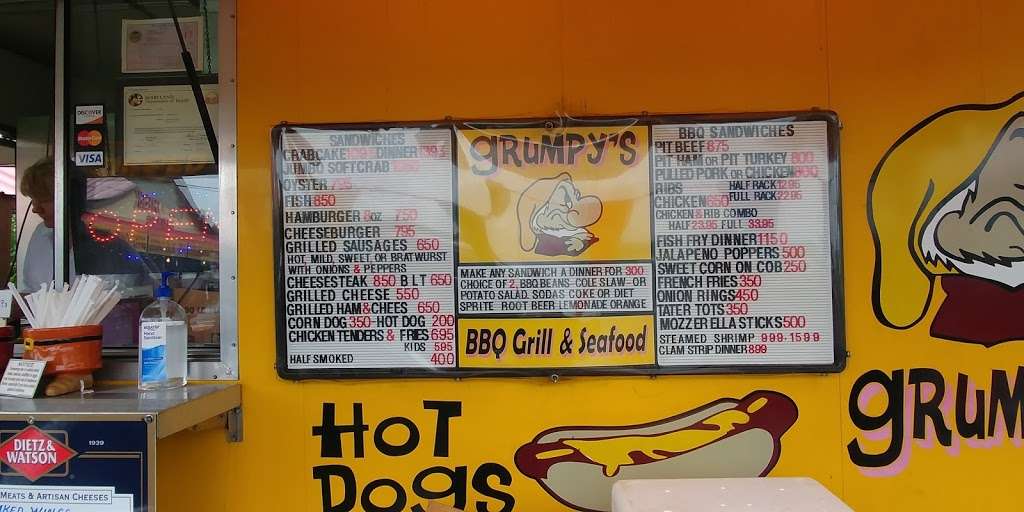 DISCOVER
MasterCard
VISA
MARYLAND
OPEN
SANDWICHES
CRABCAKE DINNER
JUMBO SOFTCRAB
OYSTER 795
FISH 850
HAMBURGER 8oz 750
CHEESEBURGER 795
GRILLED SAUSAGES 650
HOT, MILD, SWEET, OR BRATWURST
WITH ONIONS & PEPPERS
CHEESESTEAK 850 BLT 650
GRILLED CHEESE 550
GRILLED HAM & CHEES 650
CORN DOG 350-HOT DOG 200
CHICKEN TENDERS & FRIES 695
KIDS 595
HALF SMOKED 400
GRUMPY'S
MAKE ANY SANDWICH A DINNER FOR 300
CHOICE OF 2, BBQ BEANS- COLE SLAW-OR
POTATO SALAD. SODAS COKE OR DIET
SPRITE ROOT BEER LEMONADE ORANGE
BBQ Grill & Seafood
BBQ SANDWICHES
PIT BEEF 875
PIT HAM OR PIT TURKEY 800
PULLED PORK OR CHICKEN 800
RIBS HALF RACK 12.95
CHICKEN 650 FULL RACK 22.95
CHICKEN & RIB COMBO
HALF 23.95 FULL 33.95
FISH FRY DINNER 1150
JALAPENO POPPERS 500
SWEET CORN ON COB 250
FRENCH FRIES 350
ONION RINGS 450
TATER TOTS 350
MOZZERELLA STICKS 500
STEAMED SHRIMP 999-1599
CLAM STRIP DINNER 899
HOT
DOGS
GRUM
DIETZ &
WATSON
1939
MEATS & ARTISAN CHEESES